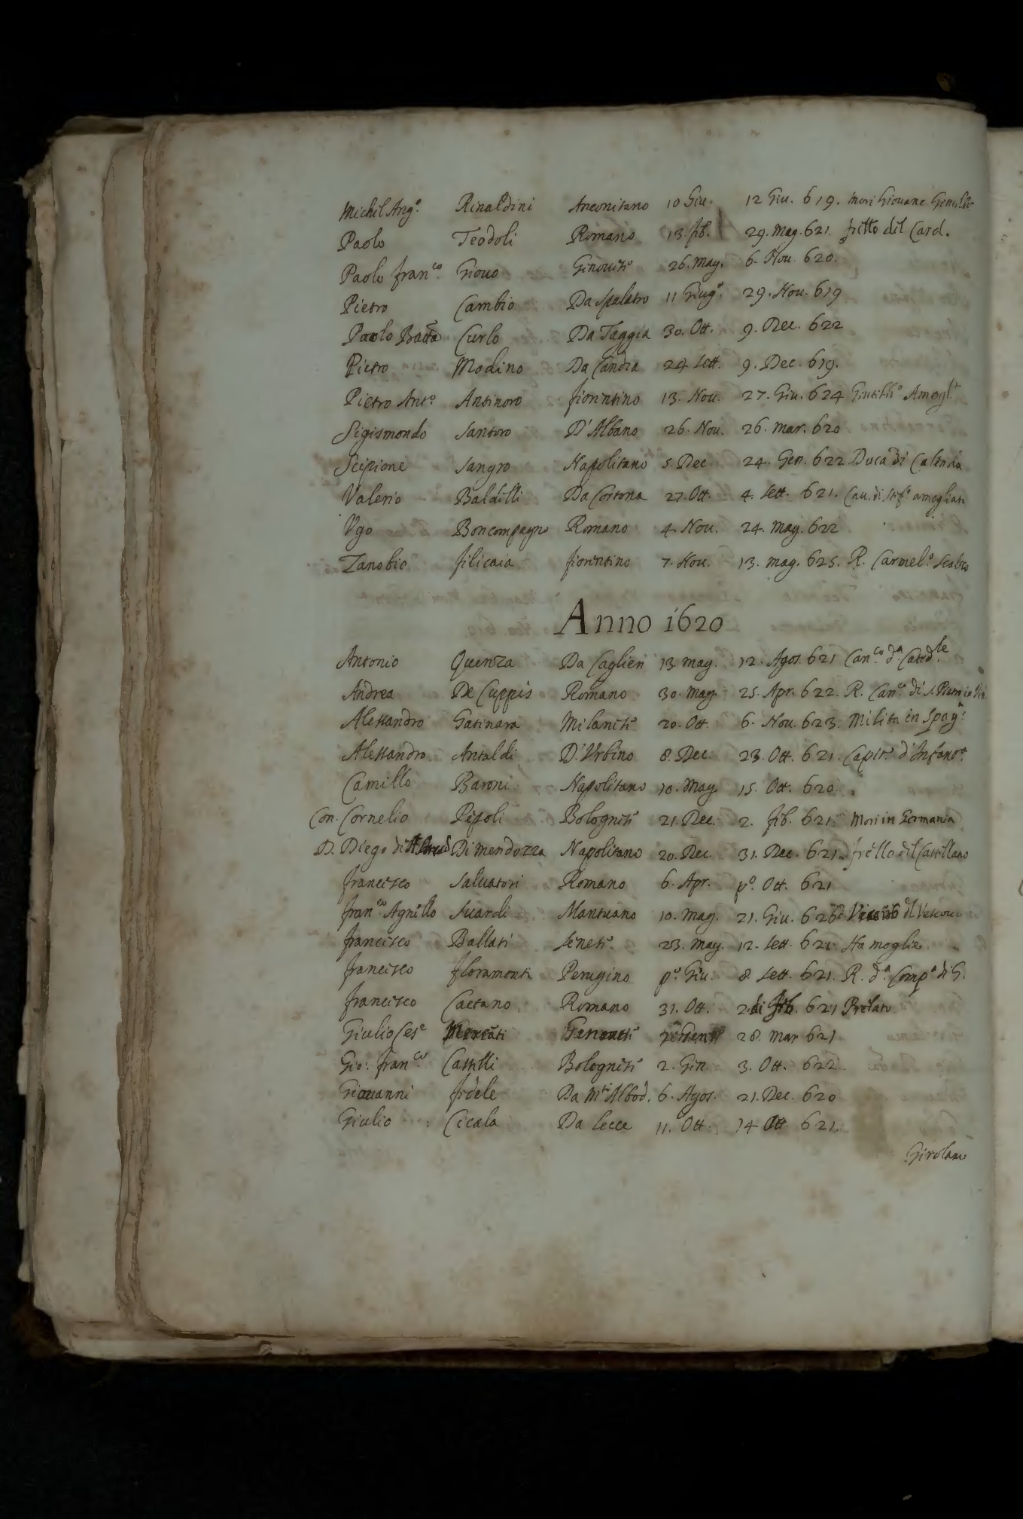 Michel Ang.o Rinaldini Anconitano 10 Giu. 12 Giu. 619. mori Giovane
Paolo Teodoli Romano 13. feb. 29. Mag. 621. frĩtto del Card.
Paolo fran.co Giovo Genovese 26. may. 6. Nov. 620.
Pietro Cambio Da Spalatro 11 Giug.o 29. Nov. 619
Paolo Batta Curlo Da Taggia 30. Ott. 9. Dec. 622
Pietro Modino Da Candia 24 Sett. 9. Dec. 619.
Pietro Ant.o Antinoro fiorentino 13. Nov. 27. Giu. 624
Sigismondo Santoro D'Albano 26. Nov. 26. mar. 620
Scipione Sangro Napolitano 5. Dec 24. Gen. 622 Duca di
Valerio Baldelli Da Cortona 27. Ott. 4. Sett. 621. Cav. di
Ugo Boncompagn Romano 4. Nov. 24. may. 622
Zanobio filicaia fiorentino 7. Nov. 13. mag. 625. R. Carmel.o Scalzo
Anno 1620
Antonio Quenza Da Caglieri 13 may. 12. Agos. 621 Can.co d.a Catd.le
Andrea De Cuppis Romano 30. may. 25. Apr. 622. R. Can.co di
Alessandro Gatinara Milanese 20. Ott. 6. Nov. 623. Milita in Spag.a
Alessandro Antaldi D'Urbino 8. Dec. 23. Ott. 621. Capit.o d'Infant.a
Camillo Baroni Napolitano 10. May. 15. Ott. 620
Con. Cornelio Pepoli Bolognese 21. Dec. 2. feb. 621. Mori in Germania
D. Diego di Di mendozza Napolitano 20. Dec. 31. Dec. 621. frello del Castellano
francesco Salvatori Romano 6. Apr. p.o Ott. 621
fran.co Agnello Suardi Mantuano 10. may. 21. Giu. del Vescovo
francesco Ballati Senese 23. may. 12. Sett. 621 Ha moglie
francesco floramonti Perugino p.o Giu. 8 Sett. 621. R. d.a Comp.a di G.
francesco Caetano Romano 31. Ott. 2 di feb. 621 Prelato
Giulio Ces.e 28. Mar 621
Gio: fran.co Castelli Bolognese 2. Gen. 3. Ott. 622
Giovanni fedele Da M.te Albod. 6. Agos. 21. Dec. 620
Giulio Cicala Da Lecce 11. Ott. 14 Ott 621.
Girolamo